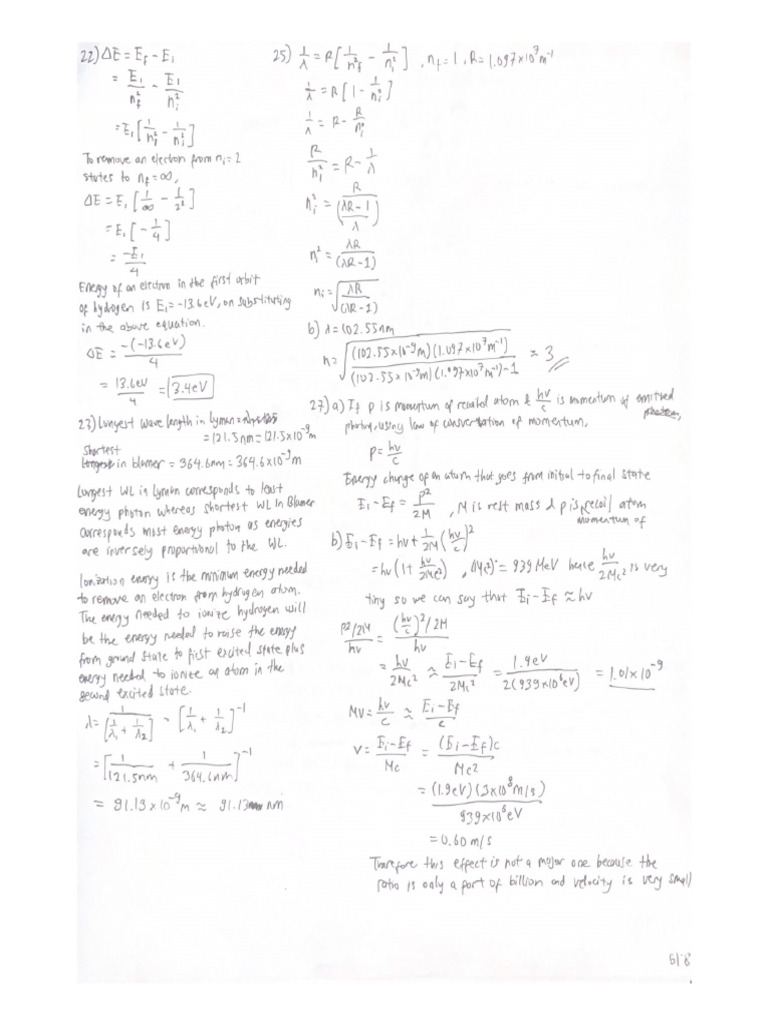 22) ΔE = E_f - E_i
= E₁/n_f² - E₁/n_i²
= E₁[1/n_f² - 1/n_i²]
To remove an electron from n_i = 2
states to n_f = ∞,
ΔE = E₁[1/∞ - 1/2²]
= E₁[-1/4]
= -E₁/4
Energy of an electron in the first orbit
of hydrogen is E₁ = -13.6eV, on substituting
in the above equation.
ΔE = -(-13.6eV)/4
= 13.6eV/4 = 3.4eV
23) Longest wave length in Lyman =
= 121.5nm = 121.5×10⁻⁹m
Shortest
in blamer = 364.6nm = 364.6×10⁻⁹m
Longest WL in Lyman corresponds to least
energy photon whereas shortest WL in Blamer
corresponds most energy photon as energies
are inversely proportional to the WL.
Ionization energy is the minimum energy needed
to remove an electron from hydrogen atom.
The energy needed to ionize hydrogen will
be the energy needed to raise the energy
from ground state to first excited state plus
energy needed to ionize an atom in the
second excited state.
λ = 1/[1/λ₁ + 1/λ₂] - [1/λ₁ + 1/λ₂]⁻¹
= [1/121.5nm + 1/364.6nm]⁻¹
= 91.13×10⁻⁹m ≈ 91.13 nm
25) 1/λ = R[1/n_f² - 1/n_i²], n_f = 1, R = 1.097×10⁷m⁻¹
1/λ = R[1 - 1/n_i²]
1/λ = R - R/n_i²
R/n_i² = R - 1/λ
n_i² = R/((λR-1)/λ)
n² = λR/(λR-1)
n_i = √(λR/(λR-1))
b) λ = 102.55nm
n = √((102.55×10⁻⁹m)(1.097×10⁷m⁻¹)/((102.55×10⁻⁹m)(1.097×10⁷m⁻¹)-1)) ≈ 3
27) a) If p is momentum of recoiled atom & hv/c is momentum of emitted
photon, using law of conservation of momentum,
p = hv/c
Energy change of an atom that goes from initial to final state
E_i - E_f = p²/2M, M is rest mass & p is recoil atom
momentum of
b) E_i - E_f = hv + 1/2M (hv/c)²
= hv(1 + hv/2Mc²), Mc² = 939 MeV hence hv/2Mc² is very
tiny so we can say that E_i - E_f ≈ hv
p²/2M/hv = (hv/c)²/2M/hv
= hv/2Mc² ≈ E_i-E_f/2Mc² = 1.9eV/2(939×10⁶eV) = 1.01×10⁻⁹
Mv = hv/c ≈ E_i-E_f/c
v = E_i-E_f/Mc = (E_i-E_f)c/Mc²
= (1.9eV)(3×10⁸m/s)/939×10⁶eV
= 0.60 m/s
Therefore this effect is not a major one because the
ratio is only a part of billion and velocity is very small